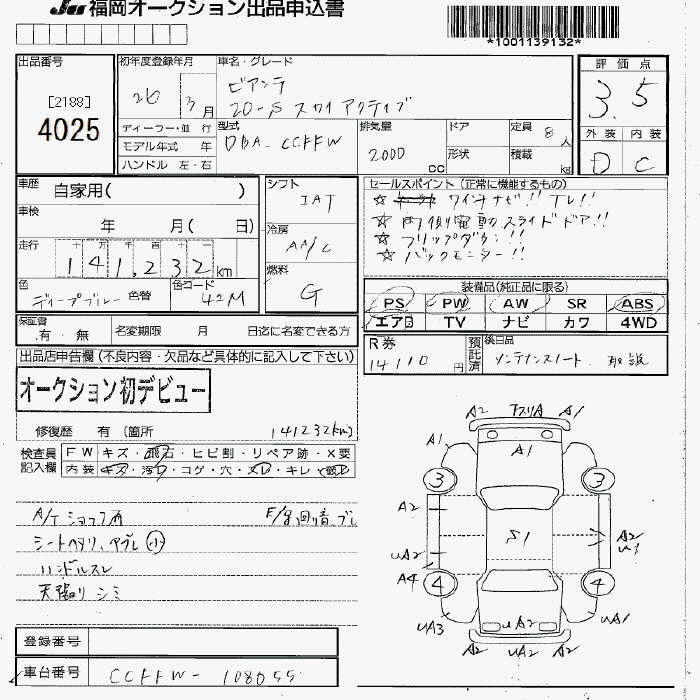 JU 福岡オークション出品申込書
*1001139132*
出品番号
[2188]
4025
初年度登録年月
26 3月
車名・グレード
ビアンテ
20-S スカイアクティブ
評価点
3.5
ディーラー・並 行
モデル年式 年
ハンドル 左・右
型式
DBA-CCFFW
排気量
2000
cc
ドア
形状
定員 8人
積載 kg
外装 内装
D C
車歴 自家用( )
車検
年 月( 日)
走行 十 万 千 百 十 一
141,232km
色
ディープブルー
色替
色コード
42M
シフト
IAT
冷房
AA/C
燃料
G
セールスポイント(正常に機能するもの)
☆ ワイドナビ!! TV!!
☆ 両側電動スライドドア!!
☆ フリップダウン!!
☆ バックモニター!!
装備品(純正品に限る)
PS PW AW SR ABS
エアB TV ナビ カワ 4WD
保証書
有・無
名変期限 月 日迄に名変できる方
R券
14110円
預託済
後日品
メンテナンスノート、取説
出品店申告欄(不良内容・欠品など具体的に記入して下さい)
オークション初デビュー
修復歴 有(箇所
141232km)
検査員
記入欄
FW キズ・飛石・ヒビ割・リペア跡・X要
内装 キズ・汚レ・コゲ・穴・スレ・キレ・
A/Tショック有
F/足回り音、ブレ
シートヘタリ、ヤブレ 小
ハンドルスレ
天張り シミ
A2 A1
A1 A1
3 3
A2
S1
A2
UA2
A4 4 4
UA3 UA2 UA1
A2 UA2 A2
登録番号
車台番号 CCFFW-108055